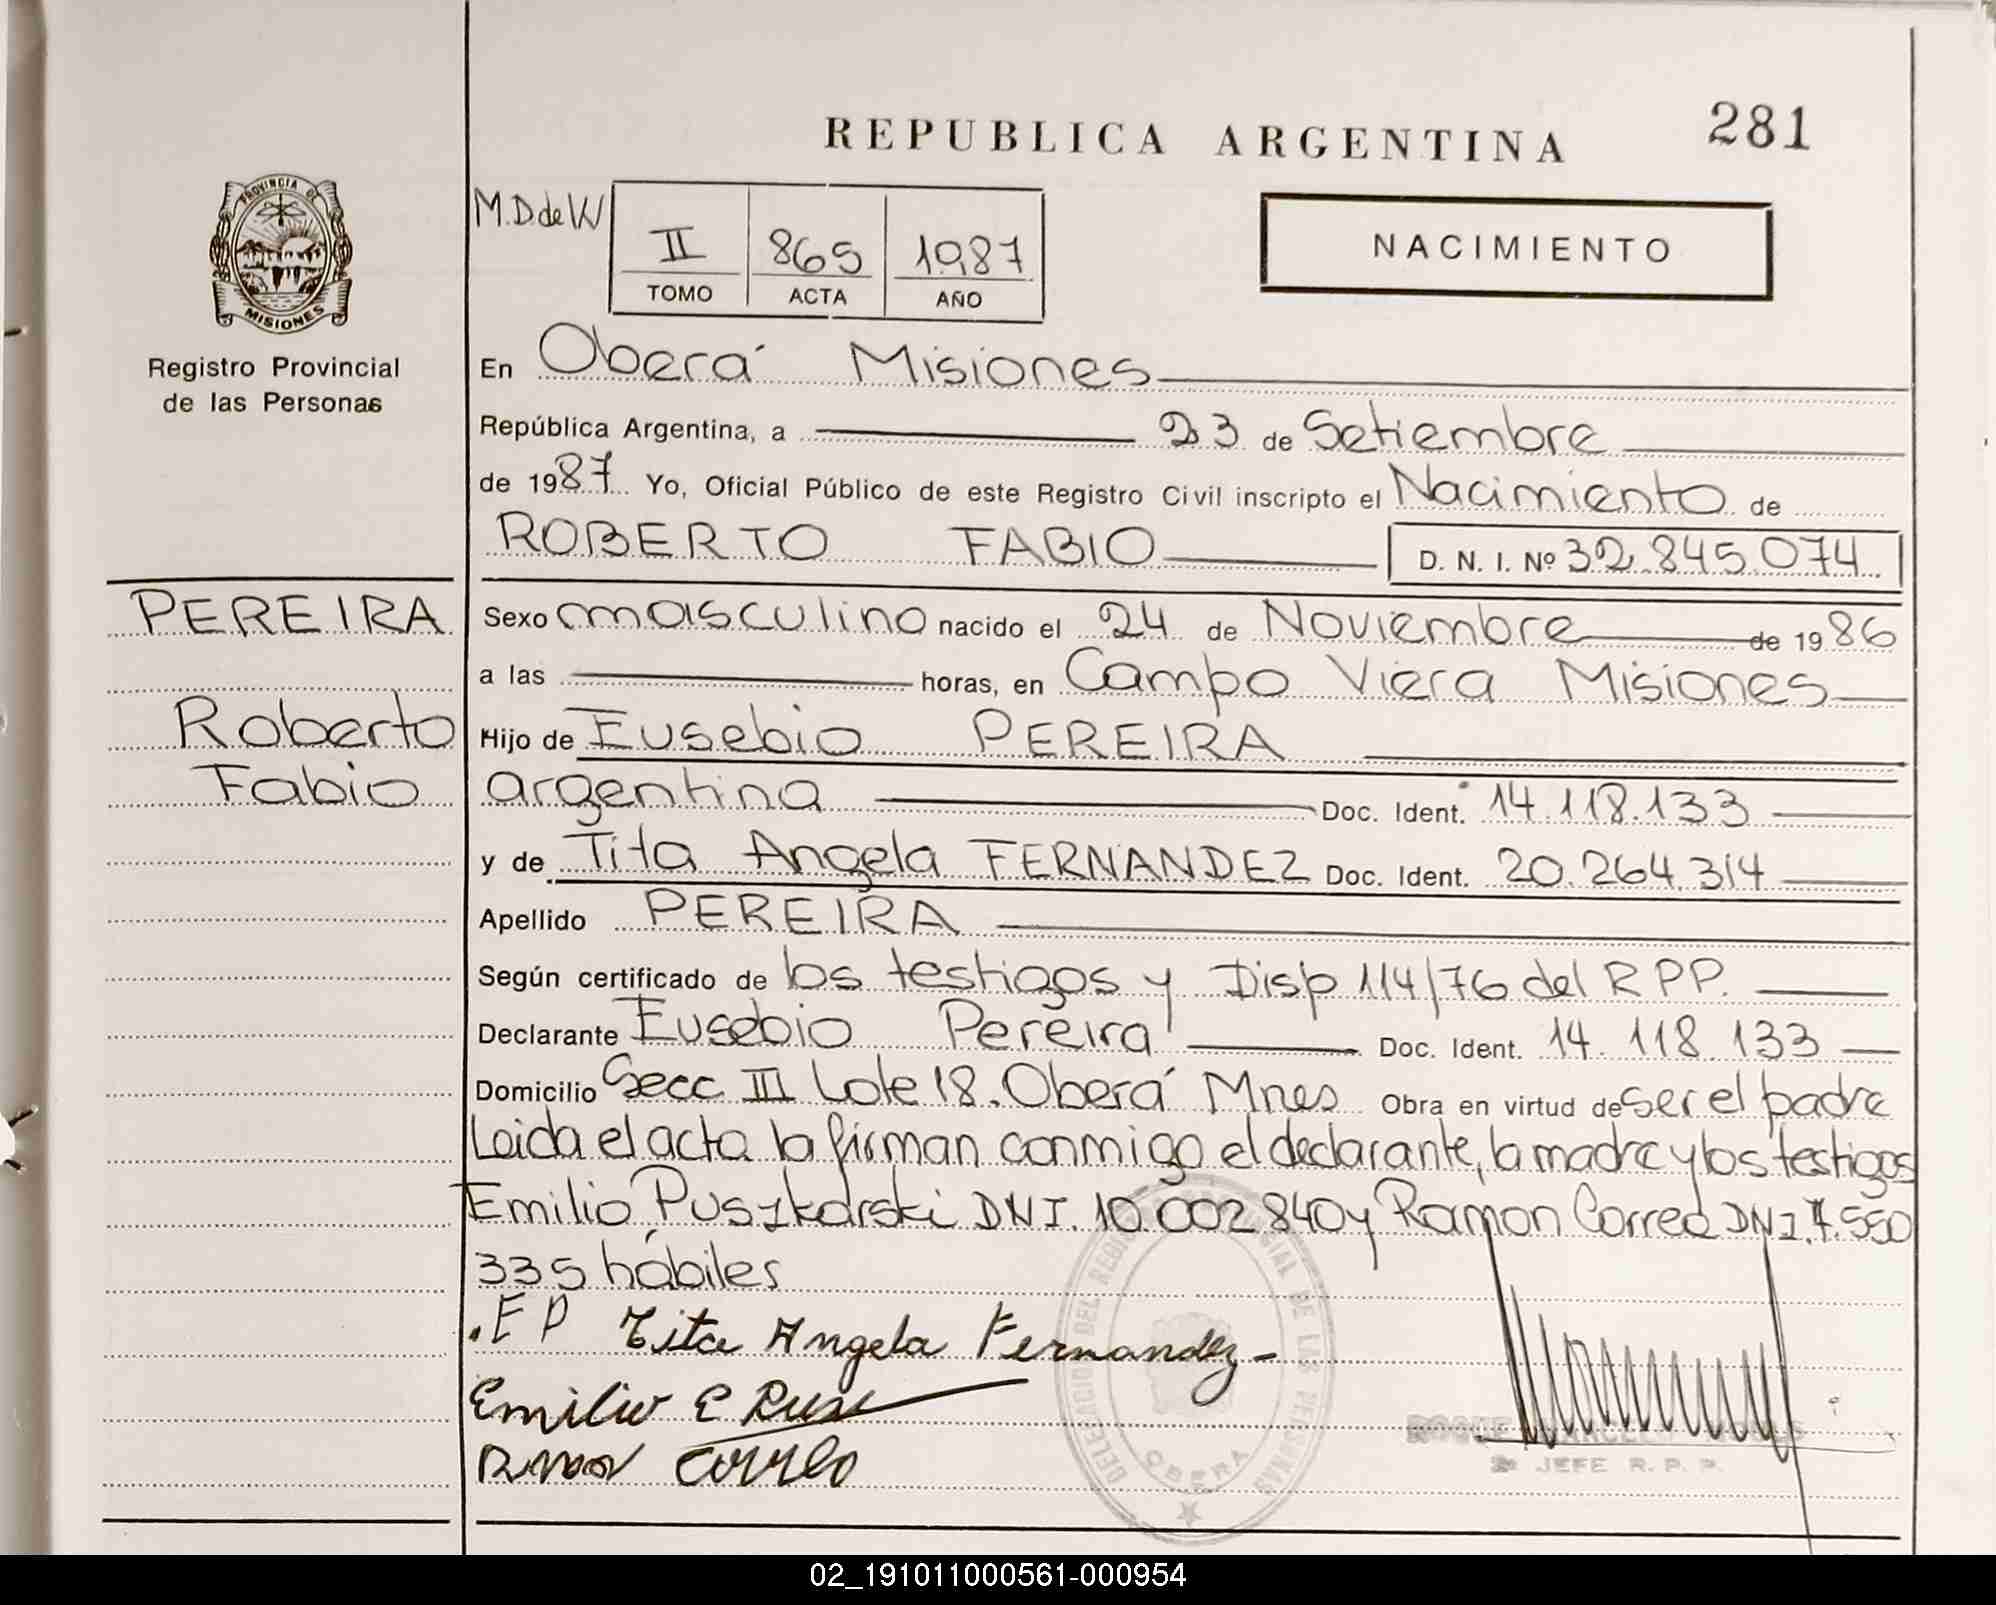 REPUBLICA ARGENTINA
281
PROVINCIA DE
MISIONES
Registro Provincial
de las Personas
M.D de W
II 865 1987
TOMO ACTA AÑO
NACIMIENTO
En Oberá Misiones
República Argentina, a 23 de Setiembre
de 1987 Yo, Oficial Público de este Registro Civil inscripto el Nacimiento de
ROBERTO FABIO D. N. I. Nº 32.845.074
PEREIRA
Roberto
Fabio
Sexo masculino nacido el 24 de Noviembre de 1986
a las horas, en Campo Viera Misiones
Hijo de Eusebio PEREIRA
argentina Doc. Ident. 14.118.133
y de Tita Angela FERNANDEZ Doc. Ident. 20.264.314
Apellido PEREIRA
Según certificado de los testigos y Disp 114/76 del R P P.
Declarante Eusebio Pereira Doc. Ident. 14.118.133
Domicilio Secc III Lote 18. Oberá Mnes Obra en virtud de ser el padre
Leida el acta la firman conmigo el declarante, la madre y los testigos
Emilio Puszkarski DNI. 10.002 840 y Ramon Correa DNI. 7.550
335 hábiles
E P Tita Angela Fernandez-
Emilio E
Correa
OBERA
JEFE R. P. P.
02_191011000561-000954